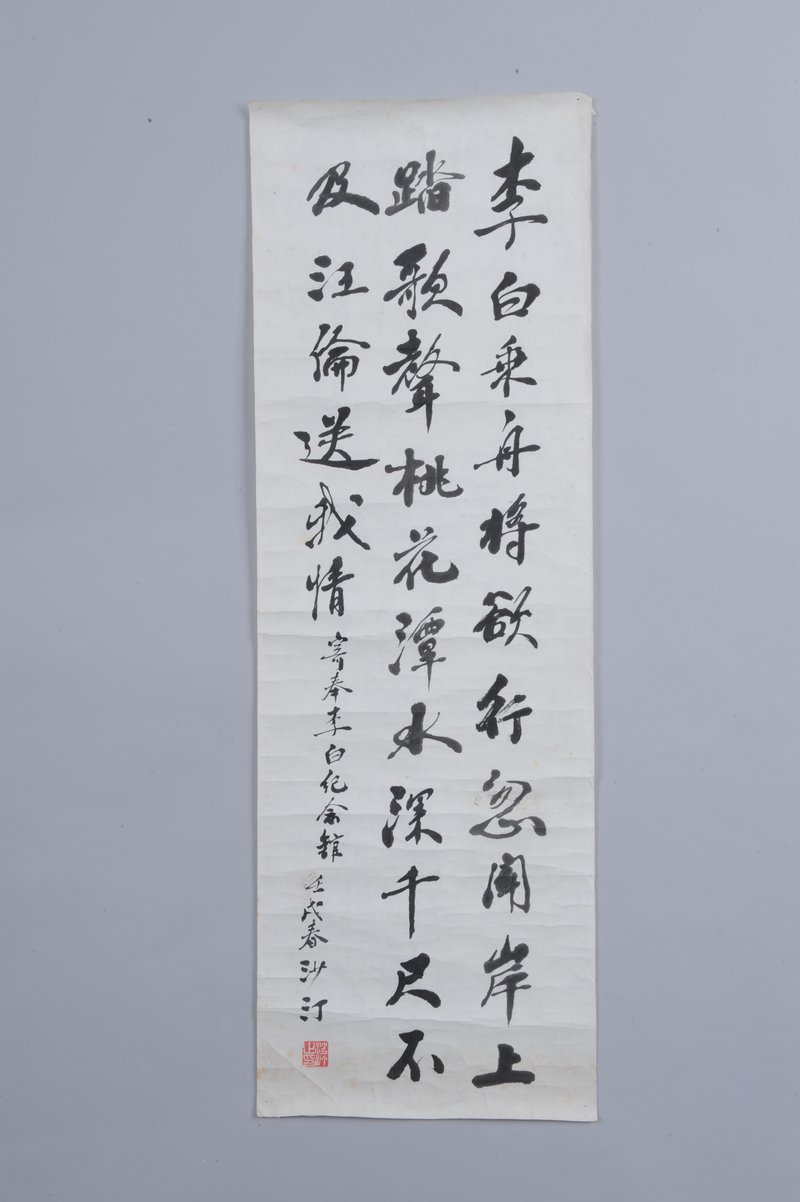 李白乘舟将欲行忽闻岸上
踏歌聲桃花潭水深千尺不
及汪倫送我情
寄奉李白纪念館
壬戌春沙汀
沙汀之印